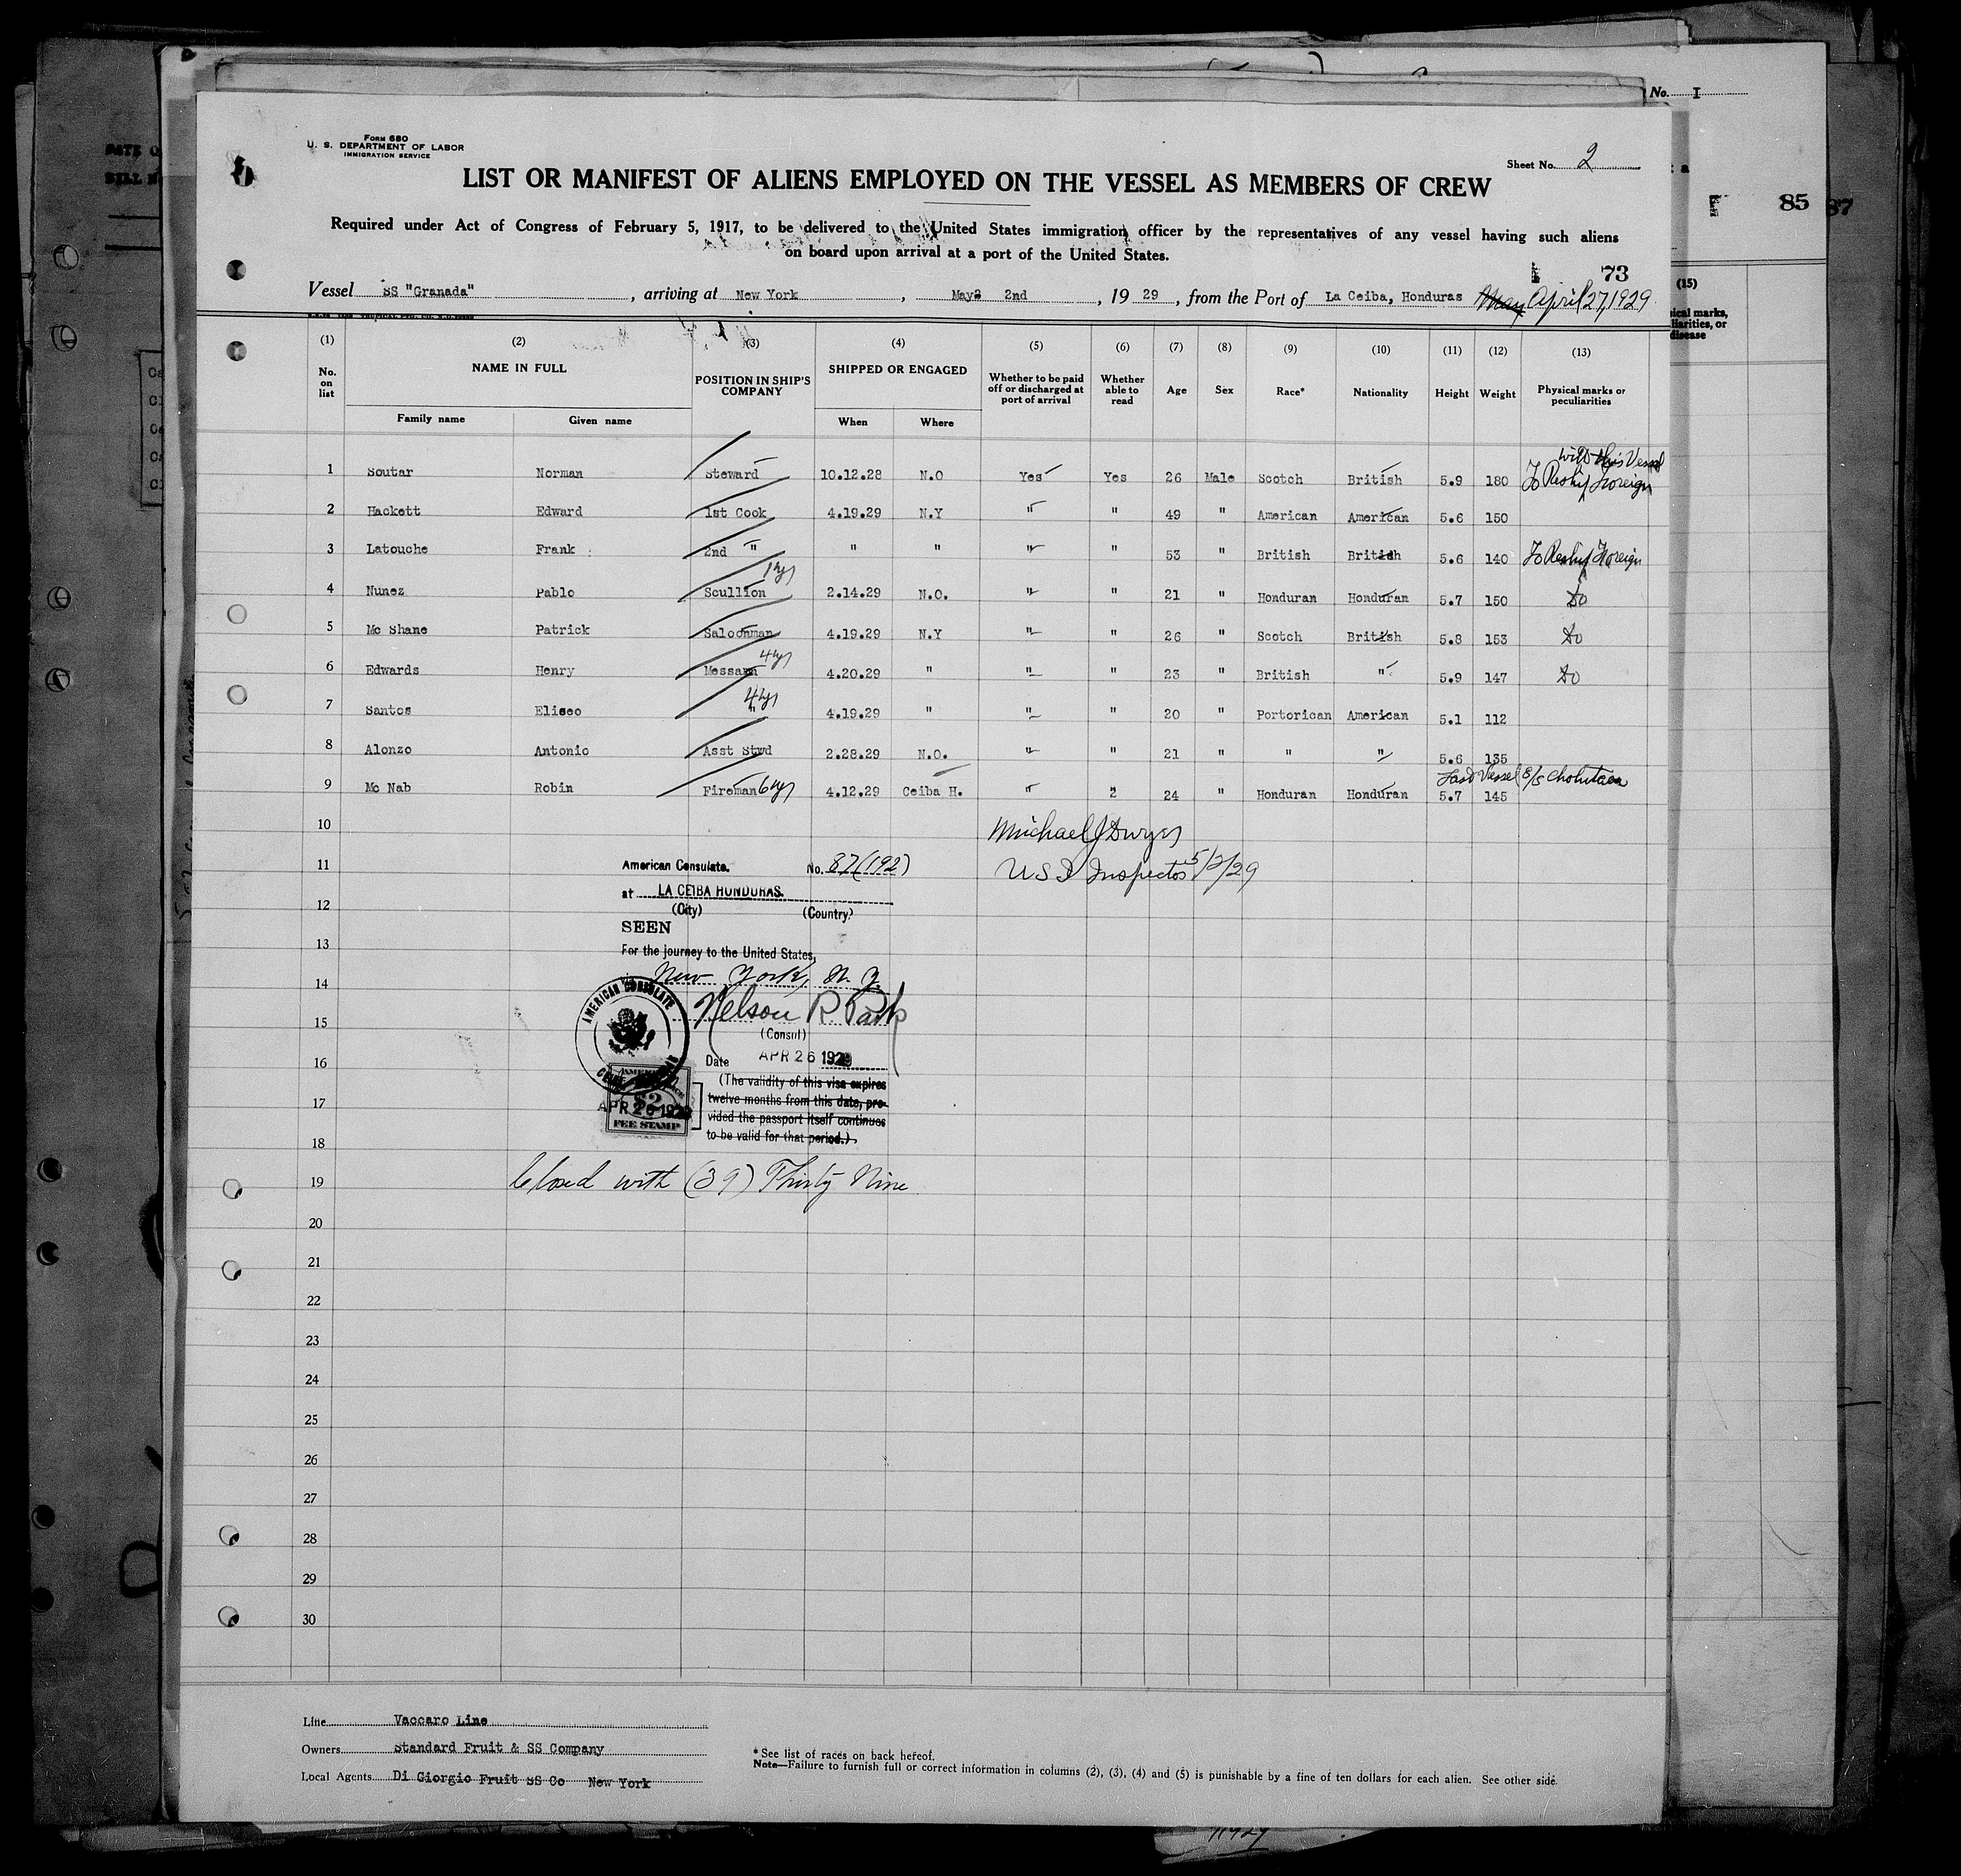 No. I
85 87
(15)
Form 680
U. S. DEPARTMENT OF LABOR
IMMIGRATION SERVICE
Sheet No. 2
LIST OR MANIFEST OF ALIENS EMPLOYED ON THE VESSEL AS MEMBERS OF CREW
Required under Act of Congress of February 5, 1917, to be delivered to the United States immigration officer by the representatives of any vessel having such aliens
on board upon arrival at a port of the United States.
73
Vessel SS "Granada" , arriving at New York , May 2nd , 19 29 , from the Port of La Ceiba, Honduras May April 27, 1929
(1) (2) (3) (4) (5) (6) (7) (8) (9) (10) (11) (12) (13)
No. on list NAME IN FULL POSITION IN SHIP'S COMPANY SHIPPED OR ENGAGED Whether to be paid off or discharged at port of arrival Whether able to read Age Sex Race* Nationality Height Weight Physical marks or peculiarities
Family name Given name When Where
with this Vessel
1 Soutar Norman Steward 10.12.28 N.O Yes Yes 26 Male Scotch British 5.9 180 To Reship Foreign
2 Hackett Edward 1st Cook 4.19.29 N.Y " " 49 " American American 5.6 150
3 Latouche Frank 2nd " " " " " 53 " British British 5.6 140 To Reship Foreign
4 Nunez Pablo Scullion 1 yr 2.14.29 N.O. " " 21 " Honduran Honduran 5.7 150 do
5 Mc Shane Patrick Saloonman 4.19.29 N.Y " " 26 " Scotch British 5.8 153 do
6 Edwards Henry Messman 4 yr 4.20.29 " " " 23 " British " 5.9 147 do
7 Santos Eliseo " 4 yr 4.19.29 " " " 20 " Portorican American 5.1 112
8 Alonzo Antonio Asst Stwd 2.28.29 N.O. " " 21 " " " 5.6 135
Last Vessel S/S
9 Mc Nab Robin Fireman 6 yr 4.12.29 Ceiba H. " " 24 " Honduran Honduran 5.7 145
10 Michael J Dwyer
11 U S I Inspector 5/2/29
American Consulate. No. 87 (192)
at LA CEIBA HONDURAS.
12 (City) (Country)
SEEN
13 For the journey to the United States,
14 New York, N.Y.
AMERICAN CONSULATE
15 Nelson R Park
(Consul)
16 Date APR 26 1929
(The validity of this visa expires
17 twelve months from this date, pro-
vided the passport itself continues
18 to be valid for that period.)
$2
APR 26 1929
FEE STAMP
19 Closed with (39) Thirty Nine
20
21
22
23
24
25
26
27
28
29
30
Line Vaccaro Line
Owners Standard Fruit & SS Company
Local Agents Di Giorgio Fruit SS Co New York
* See list of races on back hereof.
Note—Failure to furnish full or correct information in columns (2), (3), (4) and (5) is punishable by a fine of ten dollars for each alien. See other side.